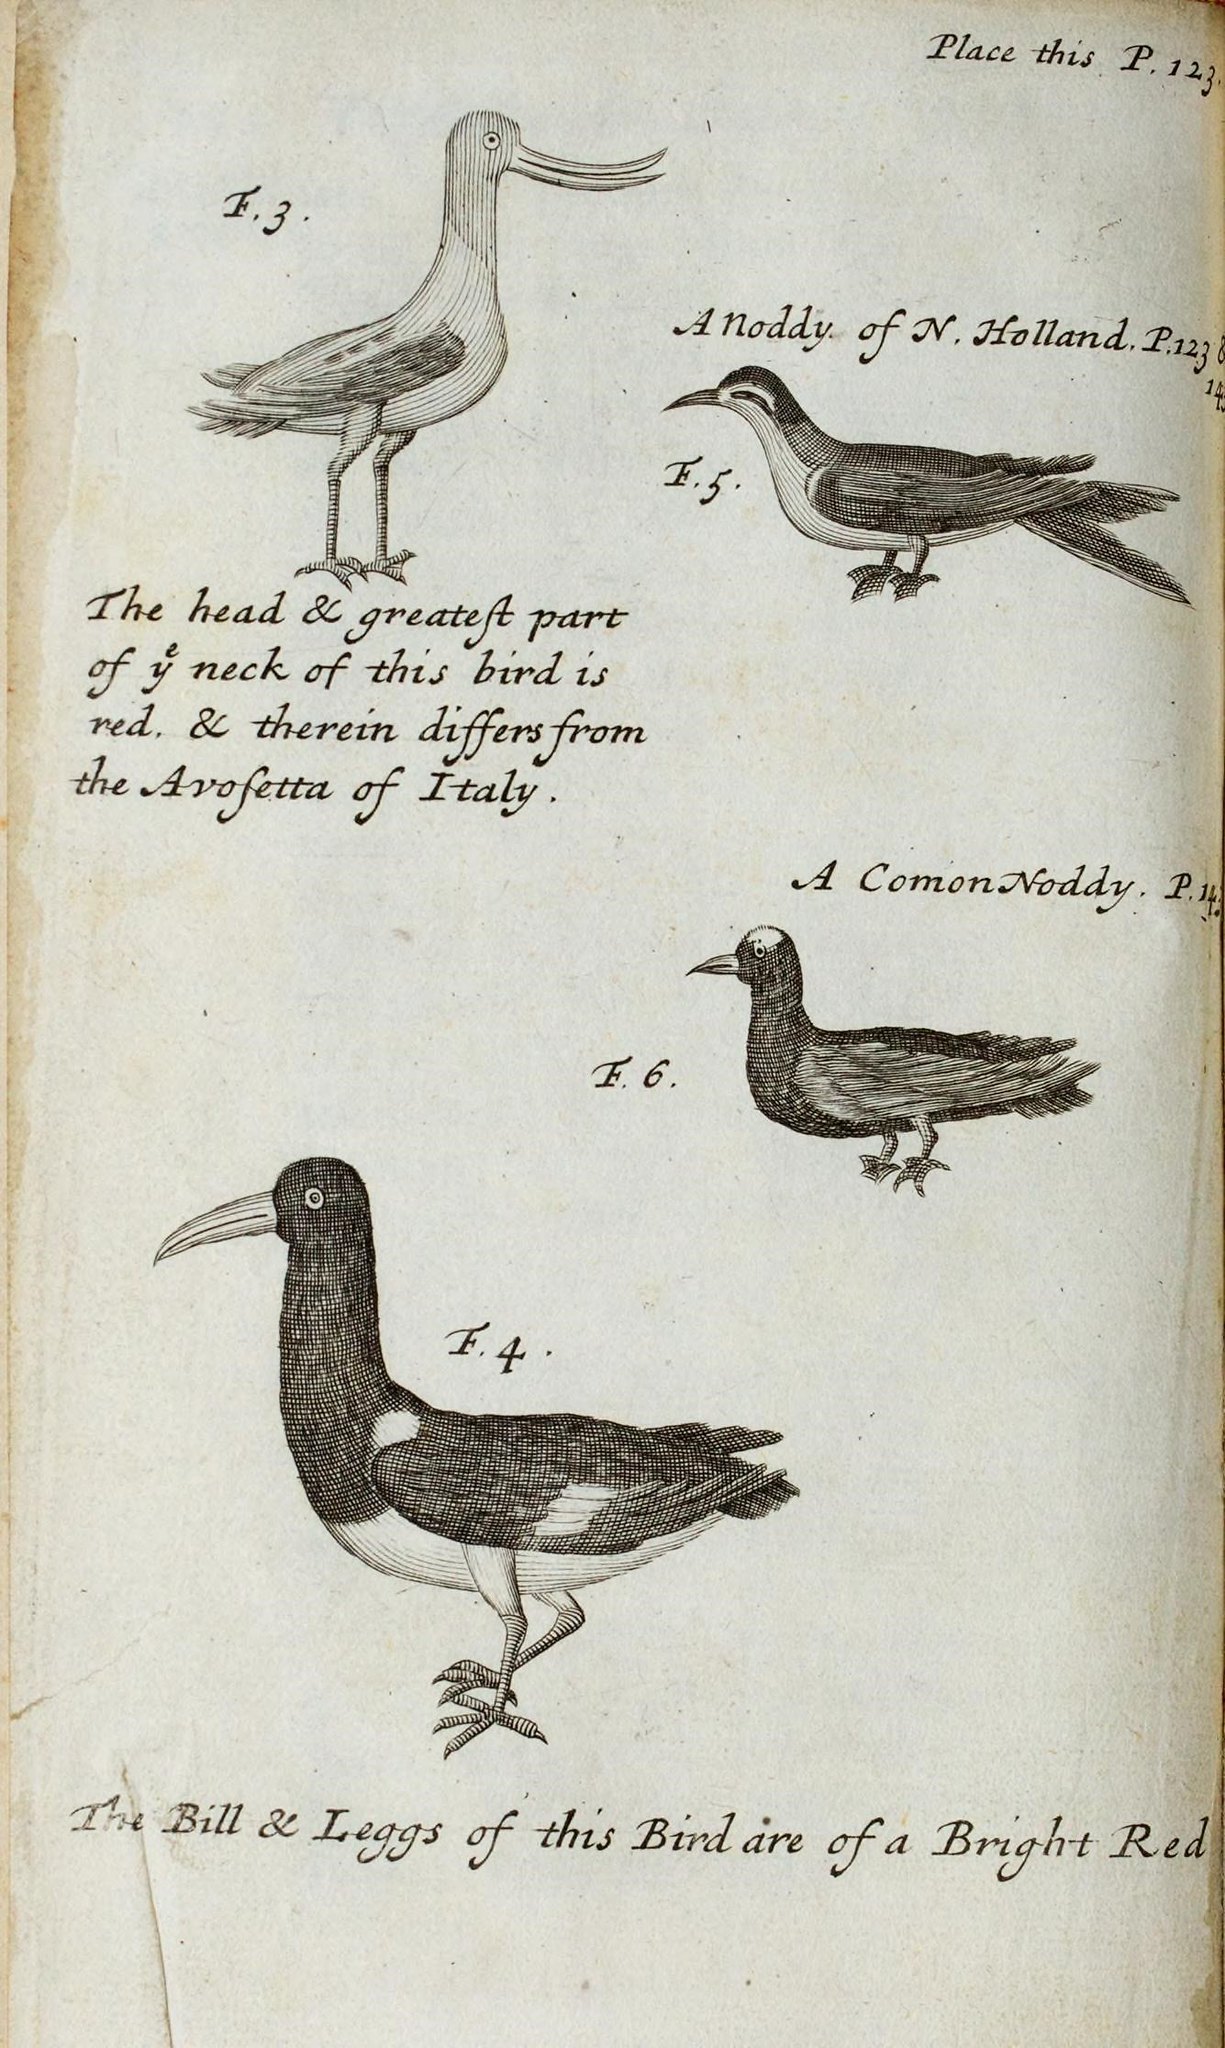 Place this P. 123.
F. 3.
A Noddy of N. Holland. P. 123 &
F. 5.
The head & greateſt part
of yͤ neck of this bird is
red. & therein differs from
the Avoſetta of Italy.
A Comon Noddy. P.
F. 6.
F. 4.
The Bill & Leggs of this Bird are of a Bright Red